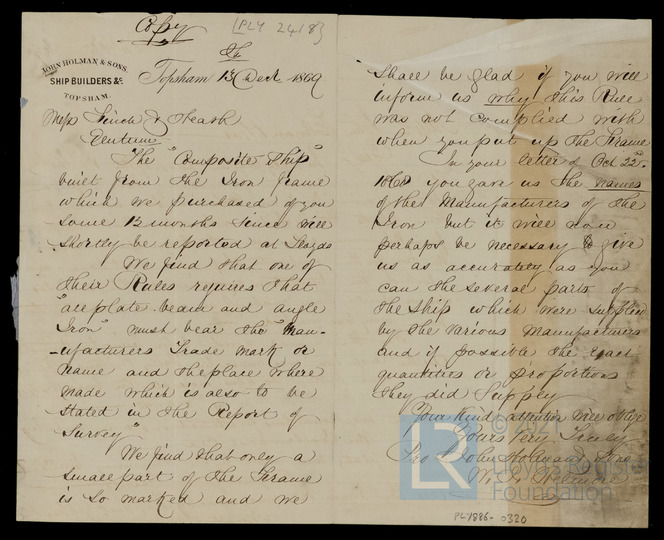 Copy
[PLY 2418]
JOHN HOLMAN & SONS,
SHIP BUILDERS &c
TOPSHAM.
Topsham 13 Decr 1869
Messrs Finch & Heath
The "Composite Ship"
built from the Iron frame
which we purchased of you
some 12 months since will
shortly be reported at Lloyds
We find that one of
their Rules requires that
"all plate beam and angle
Iron" must bear the "Man-
-ufacturers Trade mark or
name and the place where
made which is also to be
stated in the Report of
Survey"
We find that only a
small part of the Frame
is so marked and we
shall be glad if you will
inform us why this Rule
was not complied with
when you put up the Frame
In your letter of Oct 22nd
1868 you gave us the names
of the Manufacturers of the
Iron but it will now
perhaps be necessary to give
us as accurately as you
can the several parts of
the ship which were supplied
by the various Manufacturers
and if possible the exact
quantities or proportions
they did supply
Your kind attention will oblige
Yours very Truly
Pro John Holman & Sons
© 2021
LR
Lloyd's Register
Foundation
PLY886-0320